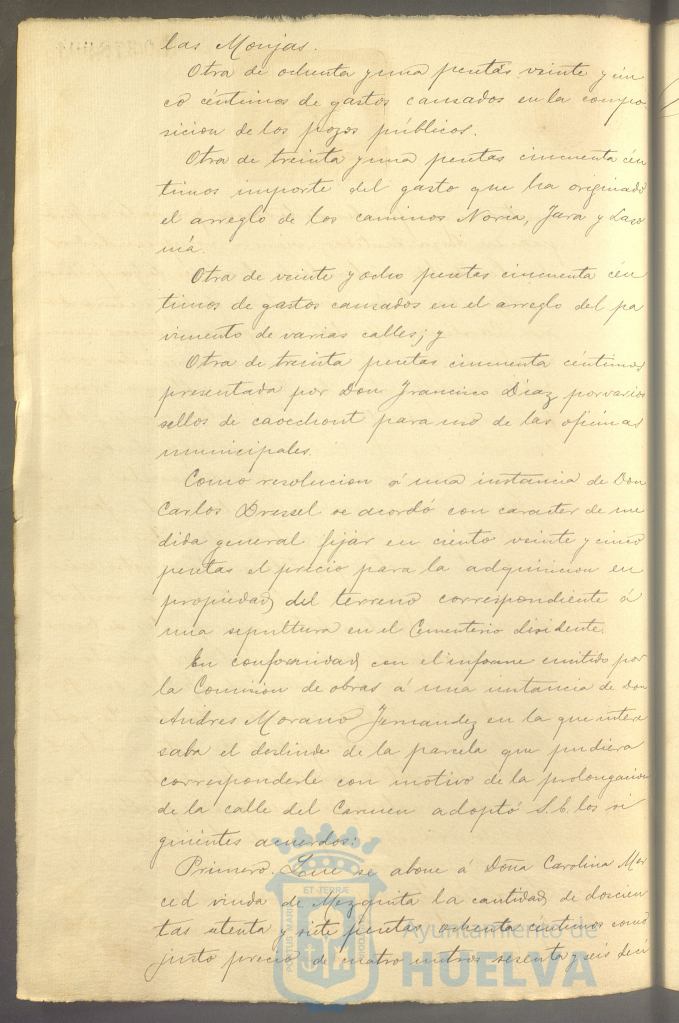 las Monjas.
Otra de ochenta y una pesetas veinte y cin
co céntimos de gastos causados en la compo-
sicion de los pozos públicos.
Otra de treinta y una pesetas cincuenta cén
timos importe del gasto que ha originado
el arreglo de los caminos Noria, Jara y
Otra de veinte y ocho pesetas cincuenta cén
timos de gastos causados en el arreglo del pa
vimento de varias calles; y
Otra de treinta pesetas cincuenta céntimos
presentada por Don Francisco Díaz por varios
sellos de caoechout para uso de las oficinas
municipales.
Como resolucion á una instancia de Don
Carlos Dressel se acordó con caracter de me
dida general fijar en ciento veinte y cinco
pesetas el precio para la adquisicion en
propiedad del terreno correspondiente á
una sepultura en el Cementerio disidente.
En conformidad con el informe emitido por
la Comision de obras á una instancia de Don
Andres Morano Fernandez en la que intere
saba el deslinde de la parcela que pudiera
corresponderle con motivo de la prolongacion
de la calle del Carmen adoptó S.E. los si
guientes acuerdos:
Primero. Que se abone á Doña Carolina Mer
ced viuda de Mezquita la cantidad de doscien
tas setenta y siete pesetas ochenta centimos como
justo precio de cuatro metros sesenta y seis deci
Ayuntamiento de
HUELVA